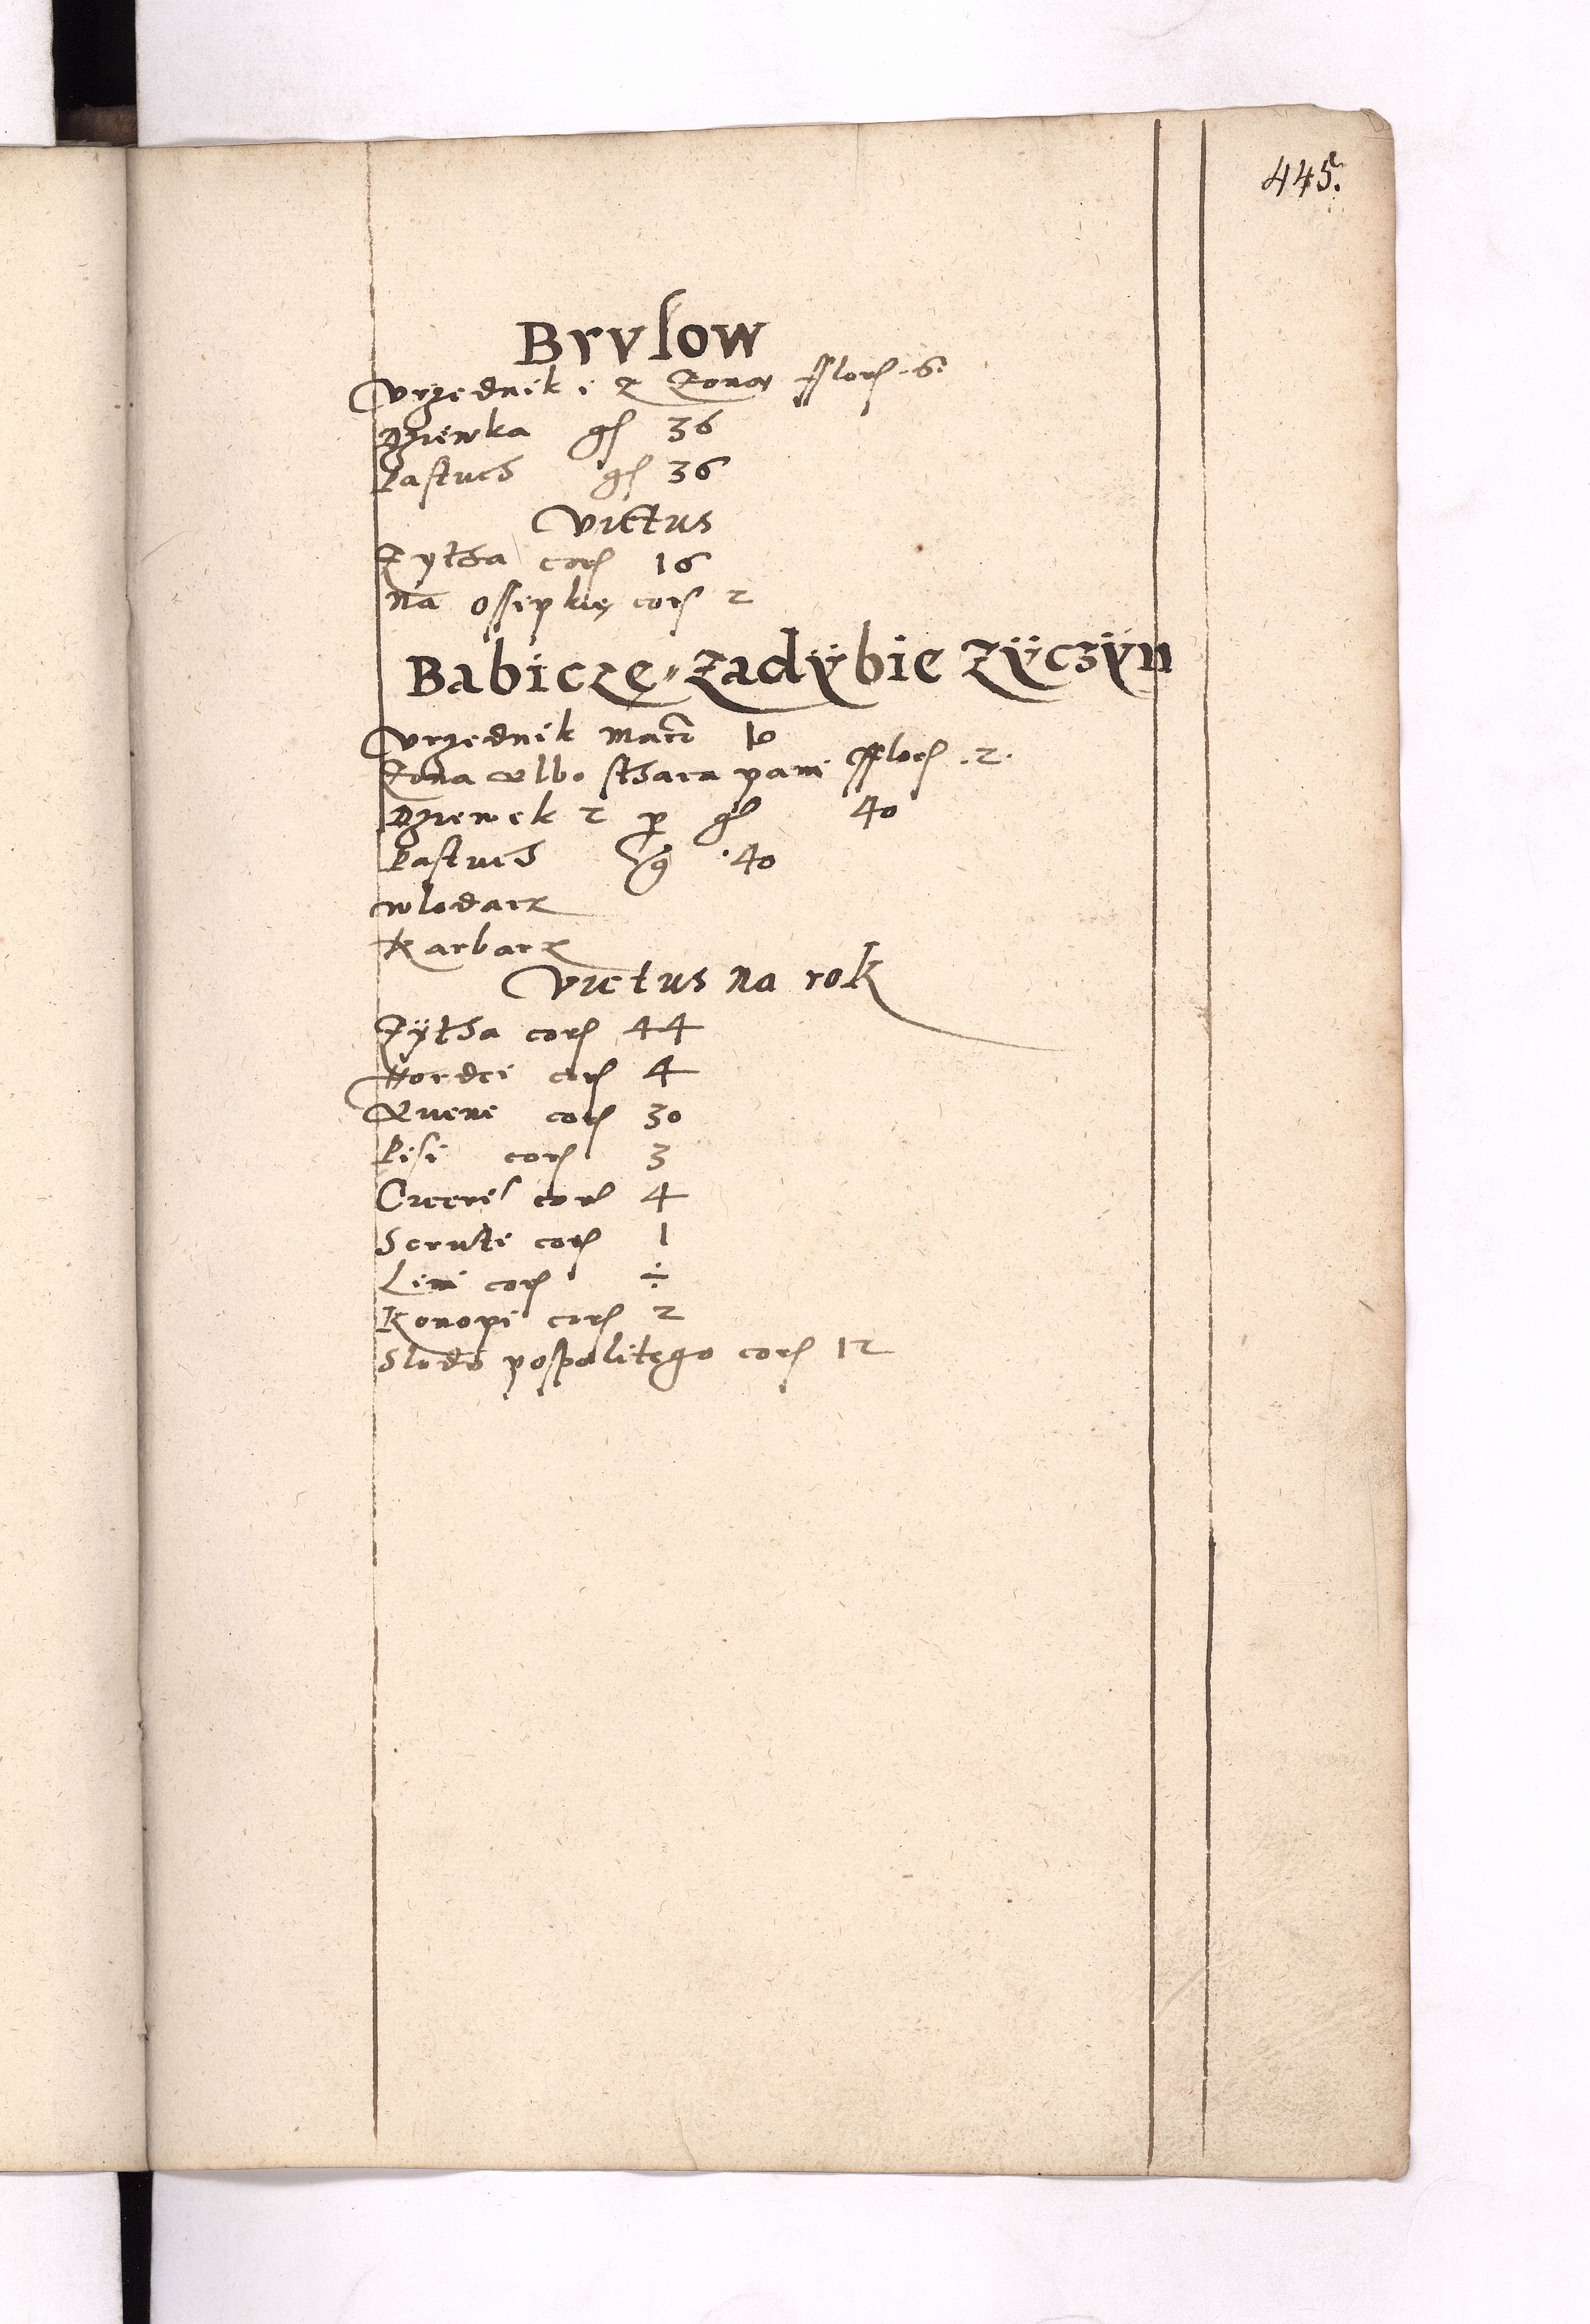 445.
Brvlow
Vrzednik i z zoną fflor. 6.
Dziewka gr 36
Pastuch gr 36
Victus
Zytha cor 16
Na ossepkię cor 2
Babicze, Zadÿbie Zÿczÿn
Vrzednik mar 10
Zona albo sthara pani fflor .2.
Dziewek 2 per gr 40
Pastuch 40
Wlodarz
Karbarz
Victus na rok
Zÿtha cor 44
Hordei cor 4
Avene cor 30
Pisi cor 3
Ciceris cor 4
cor 1
Lini cor ÷
Konopi cor 2
Slodu pospolitego cor 12